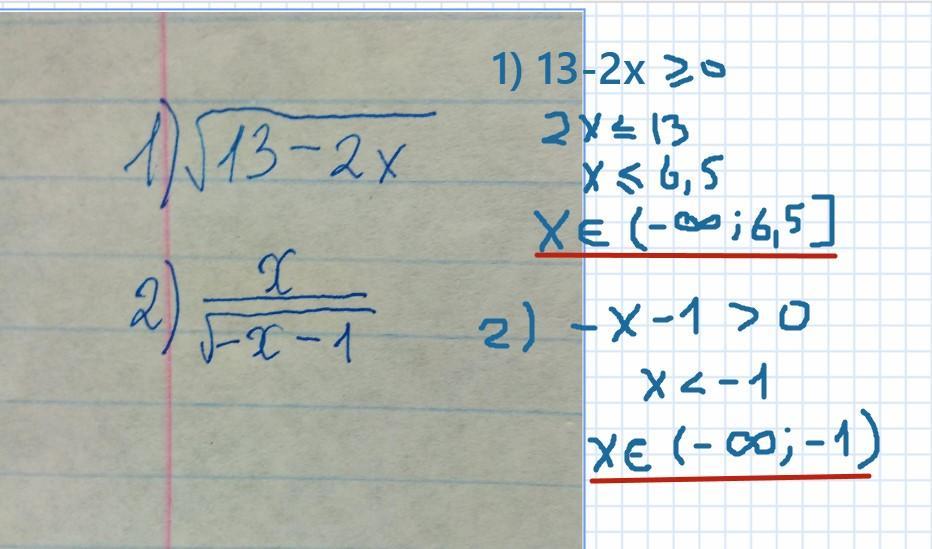 1) √13-2x
2) x/√-x-1
1) 13-2x ≥ 0
2x ≤ 13
x ≤ 6,5
x ∈ (-∞; 6,5]
2) -x-1 > 0
x < -1
x ∈ (-∞; -1)